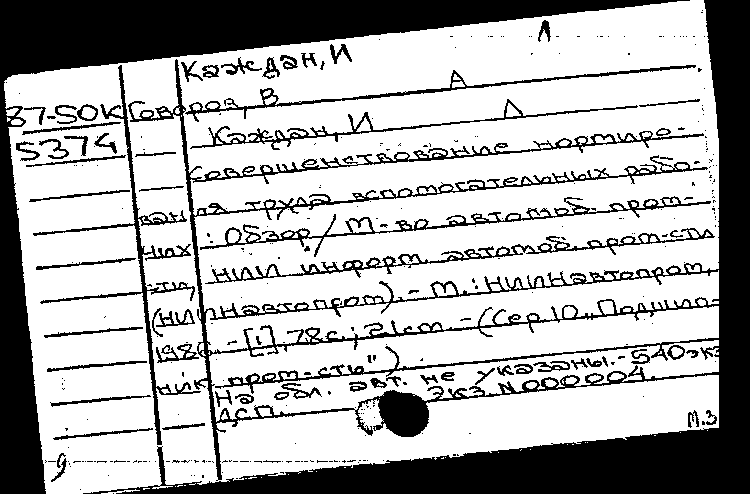 Каждан, И Л.
87-50К Говоров, В А
5374 Каждан, И Л
Совершенствование нормиро-
вания труда вспомогательных рабо-
чих : Обзор / М-во автомоб. пром-
сти, НИИ информ. автомоб. пром-сти
(НИИНавтопром). - М. : НИИНавтопром,
1986. - [1], 78с. ; 21см. - (Сер. 10 „Подшип-
ник. пром-сть").
На обл. авт. не указаны. - 540 экз
ДСП. Экз. N000004.
9 М.З